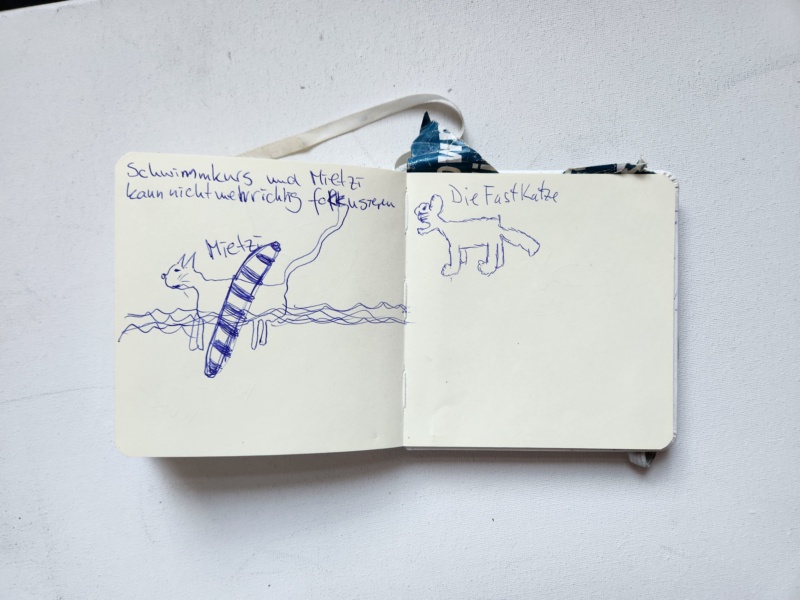 Schwimmkurs und Mietzi
kann nicht mehr richtig fokkusieren
Mietzi
Die Fast Katze